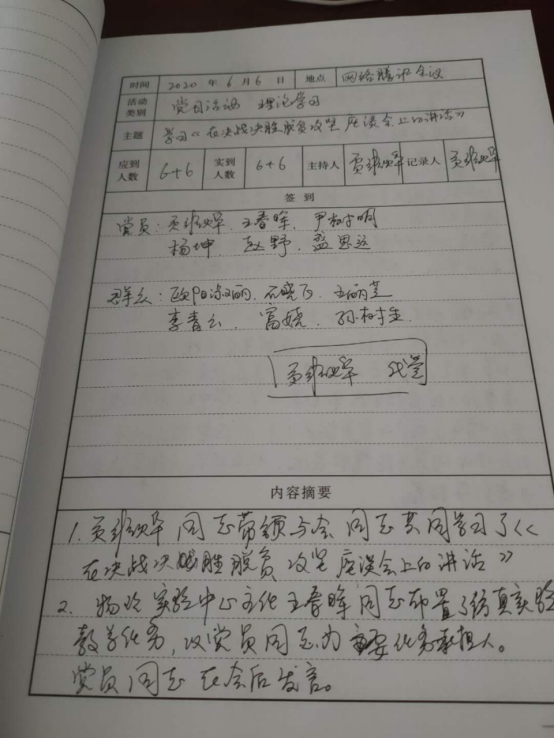 时间 2020年6月6日 地点 网络腾讯会议
活动类别 党日活动 理论学习
主题 学习《在决战决胜脱贫攻坚座谈会上的讲话》
应到人数 6+6 实到人数 6+6 主持人 记录人
签到
党员: 王春晖, 尹树明
杨坤, 赵野, 孟思远
群众: 石晓乃,
李青云, 富娆, 孙树生
代签
内容摘要
1. 同志带领与会同志共同学习了《
在决战决胜脱贫攻坚座谈会上的讲话》
2. 物理实验中心主任王春晖同志布置了仿真实验
教学任务, 以党员同志为主要任务承担人。
党员同志在会后发言。